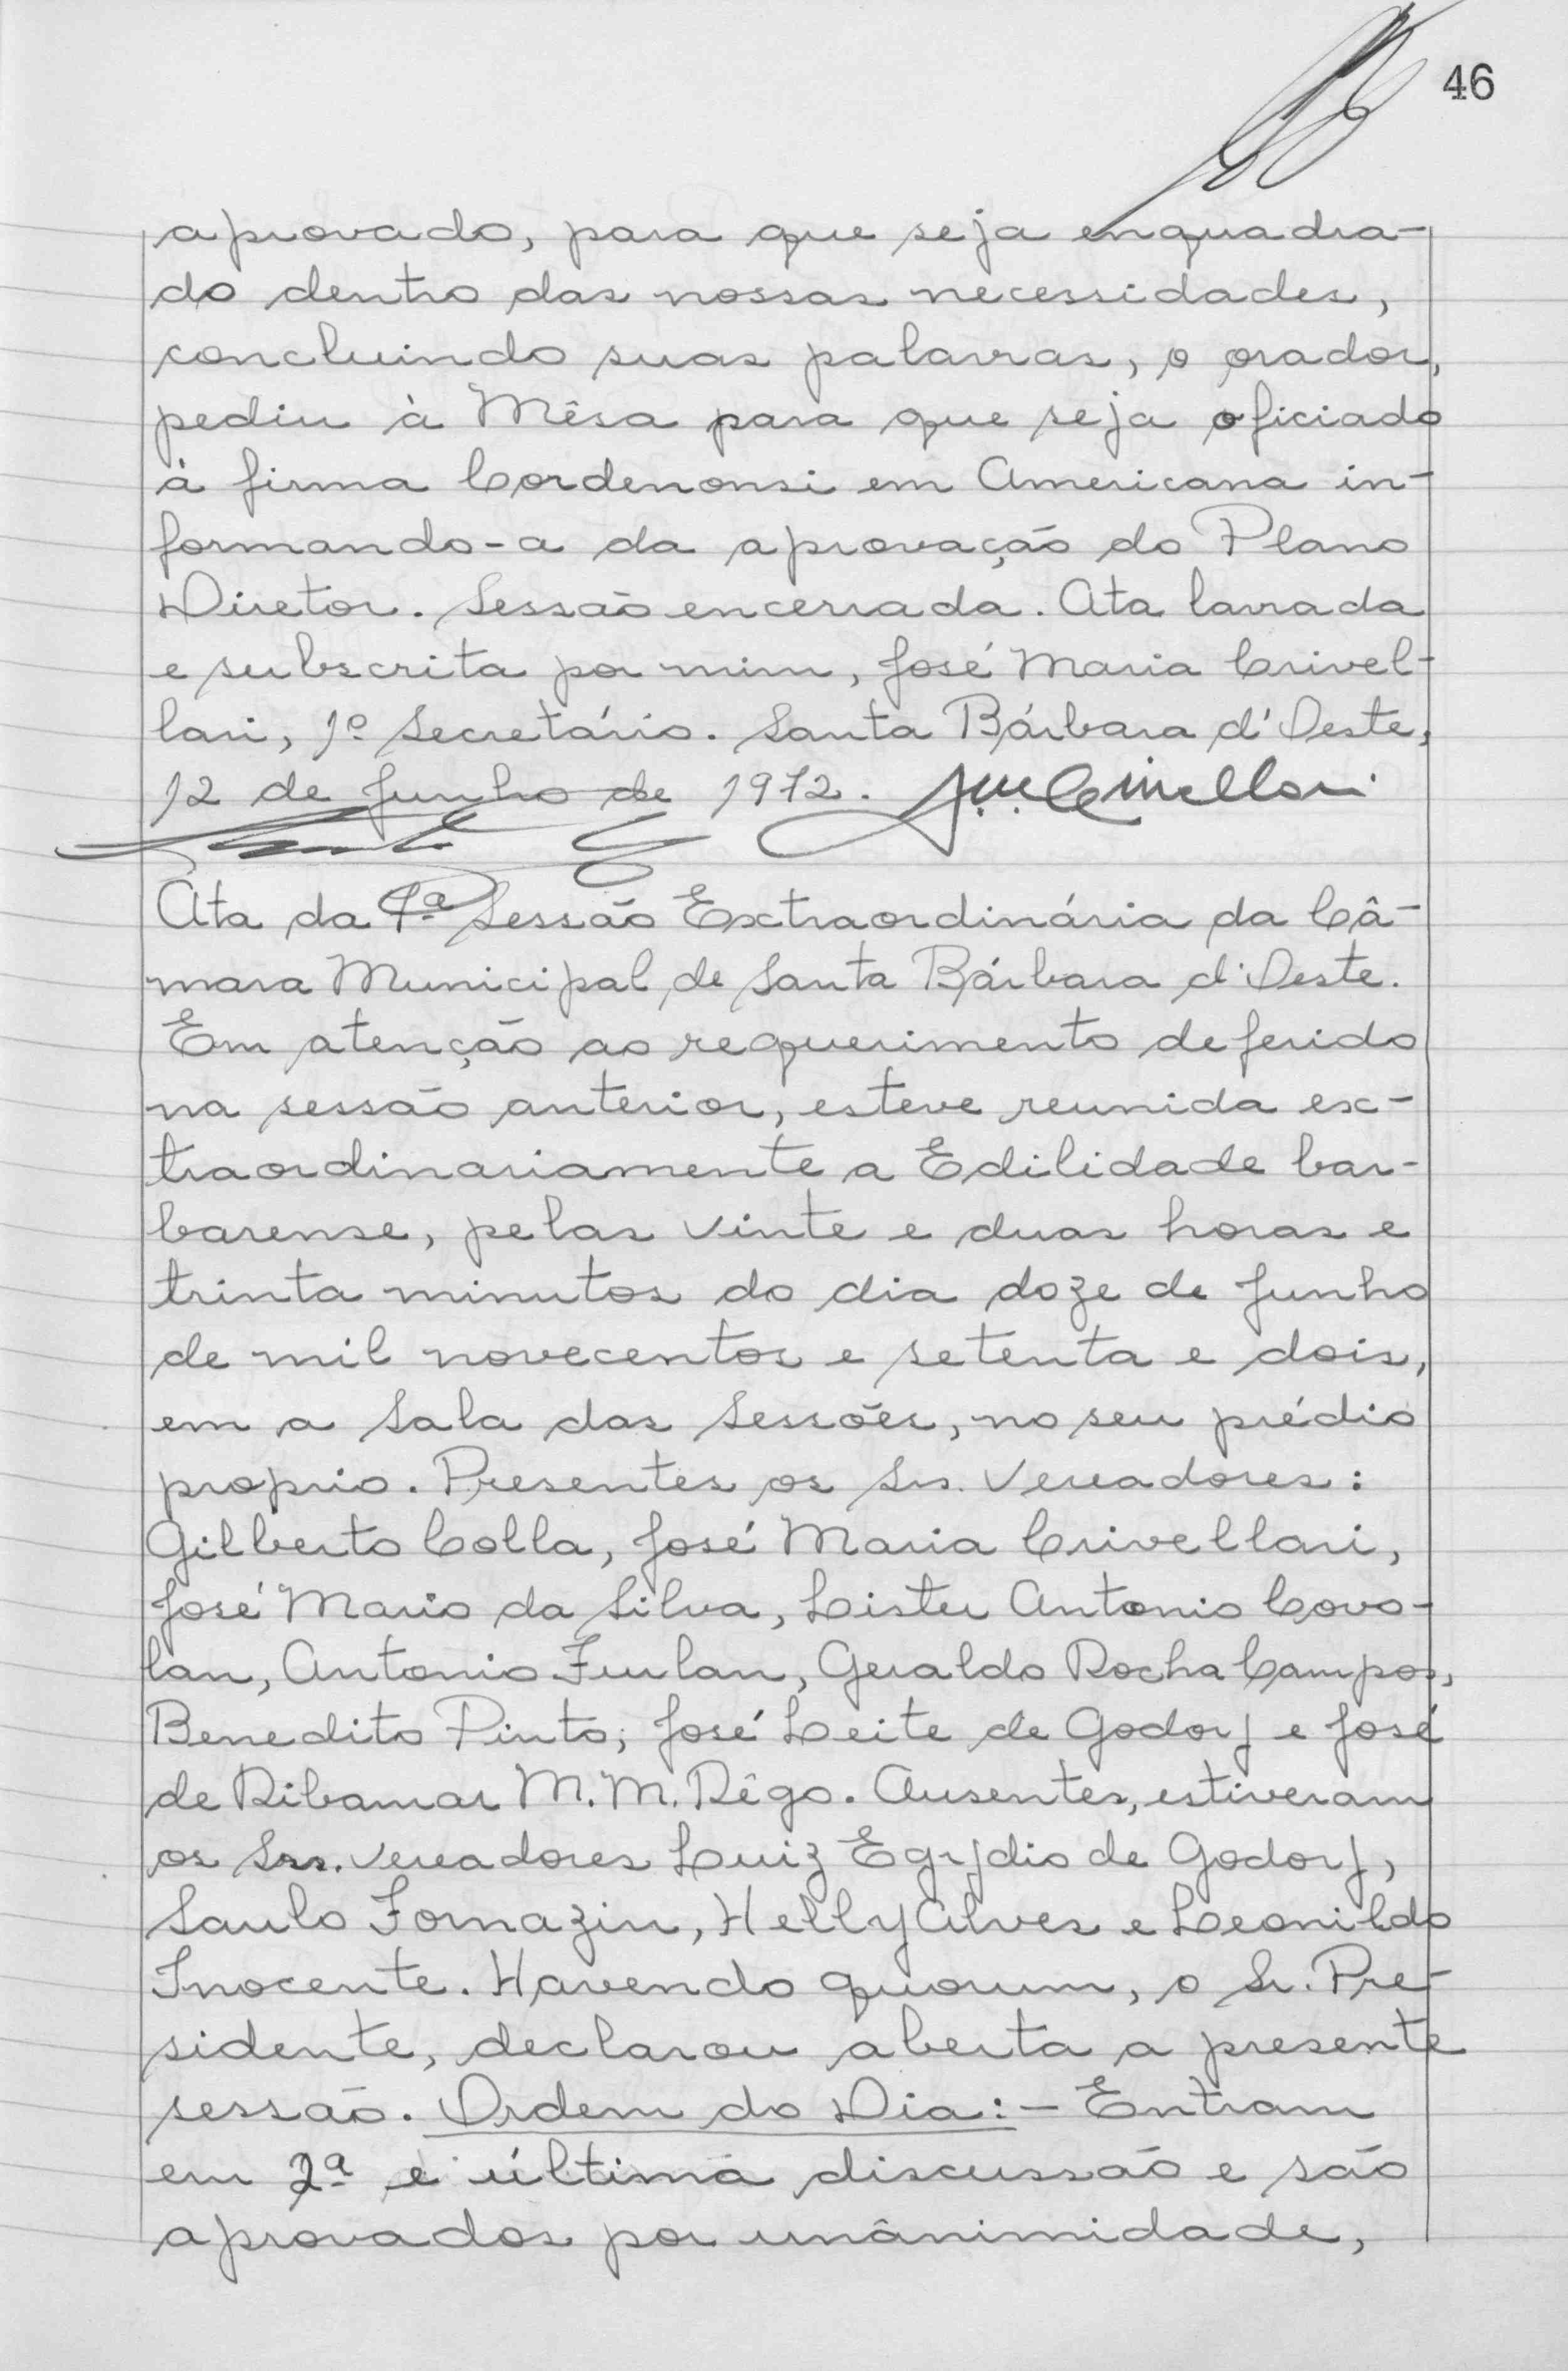 46
aprovado, para que seja enquadra-
do dentro das nossas necessidades,
concluindo suas palavras, o orador,
pediu à Mêsa para que seja oficiado
à firma Cordenonsi em Americana in-
formando-a da aprovação do Plano
Diretor. Sessão encerrada. Ata lavrada
e subscrita por mim, José Maria Crivel-
lari, 1º Secretário. Santa Bárbara d'Oeste,
12 de Junho de 1972. J.M. Crivellari
Ata da 1ª Sessão Extraordinária da Câ-
mara Municipal de Santa Bárbara d'Oeste.
Em atenção ao requerimento deferido
na sessão anterior, esteve reunida ex-
traordinariamente a Edilidade bar-
barense, pelas vinte e duas horas e
trinta minutos do dia doze de Junho
de mil novecentos e setenta e dois,
em a Sala das Sessões, no seu prédio
proprio. Presentes os Srs. Vereadores:
Gilberto Colla, José Maria Crivellari,
José Mario da Silva, Lister Antonio Covo-
lan, Antonio Furlan, Geraldo Rocha Campos,
Benedito Pinto, José Leite de Godoy e José
de Ribamar M. M. Rêgo. Ausentes, estiveram
os Srs. Vereadores Luiz Egydio de Godoy,
Saulo Fornazin, Helly Alves e Leonildo
Inocente. Havendo quorum, o Sr. Pre-
sidente, declarou aberta a presente
sessão. Ordem do Dia:- Entram
em 2ª e última discussão e são
aprovados por unânimidade,